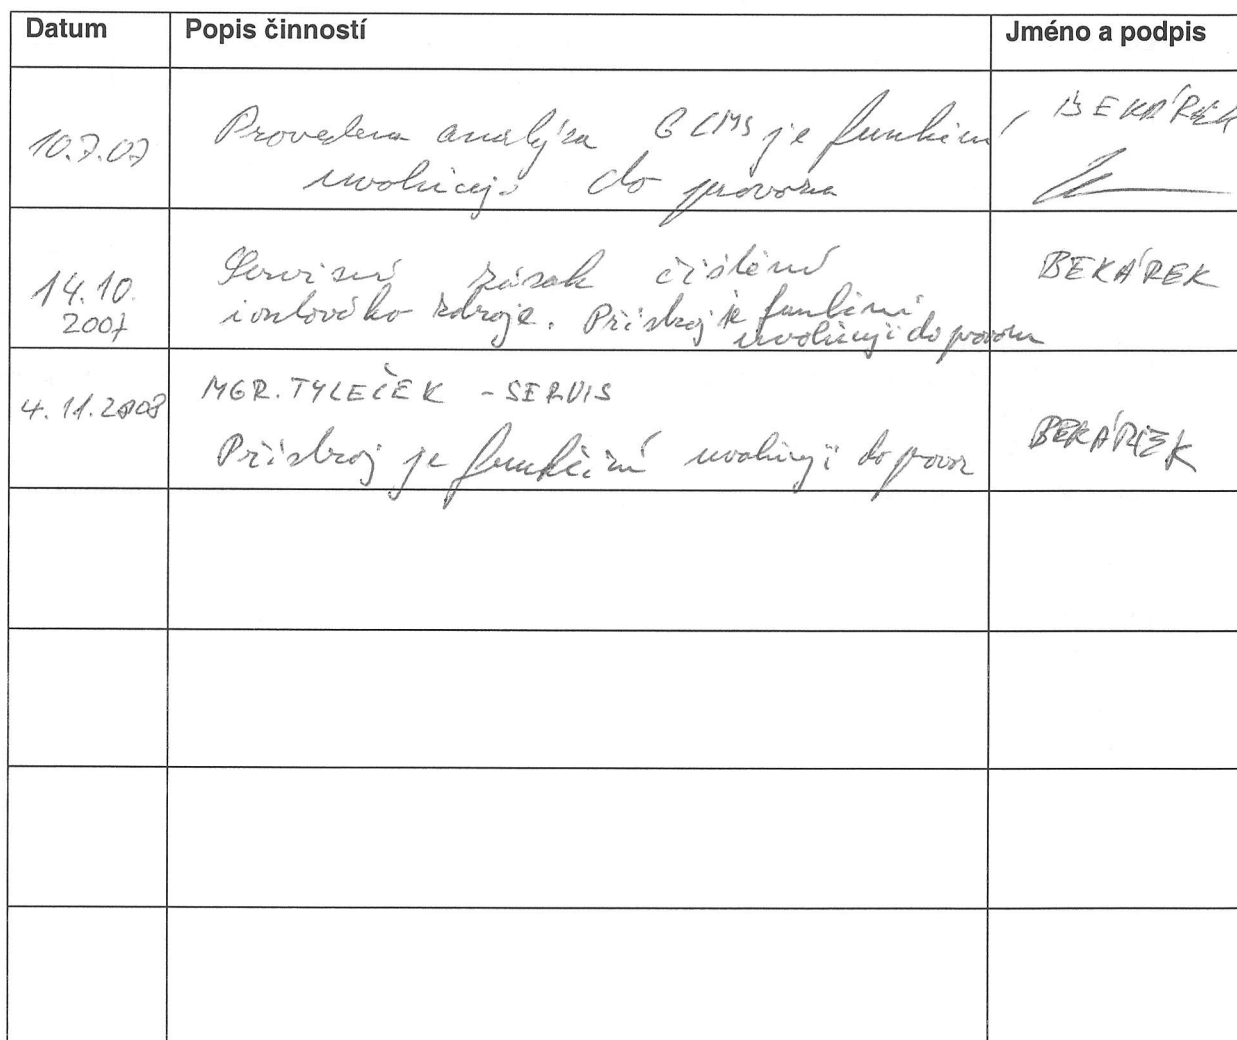 Datum Popis činností Jméno a podpis
10.7.07 Provedena analýza GCMS je funkční, BEKÁREK
uvolňuji do provozu
14.10. Servisní zásah čištění BEKÁREK
2007 iontového zdroje. Přístroj je funkční
uvolňuji do provozu
4.11.2008 MGR. TYLEČEK - SERVIS
Přístroj je funkční uvolňuji do provoz BEKÁREK